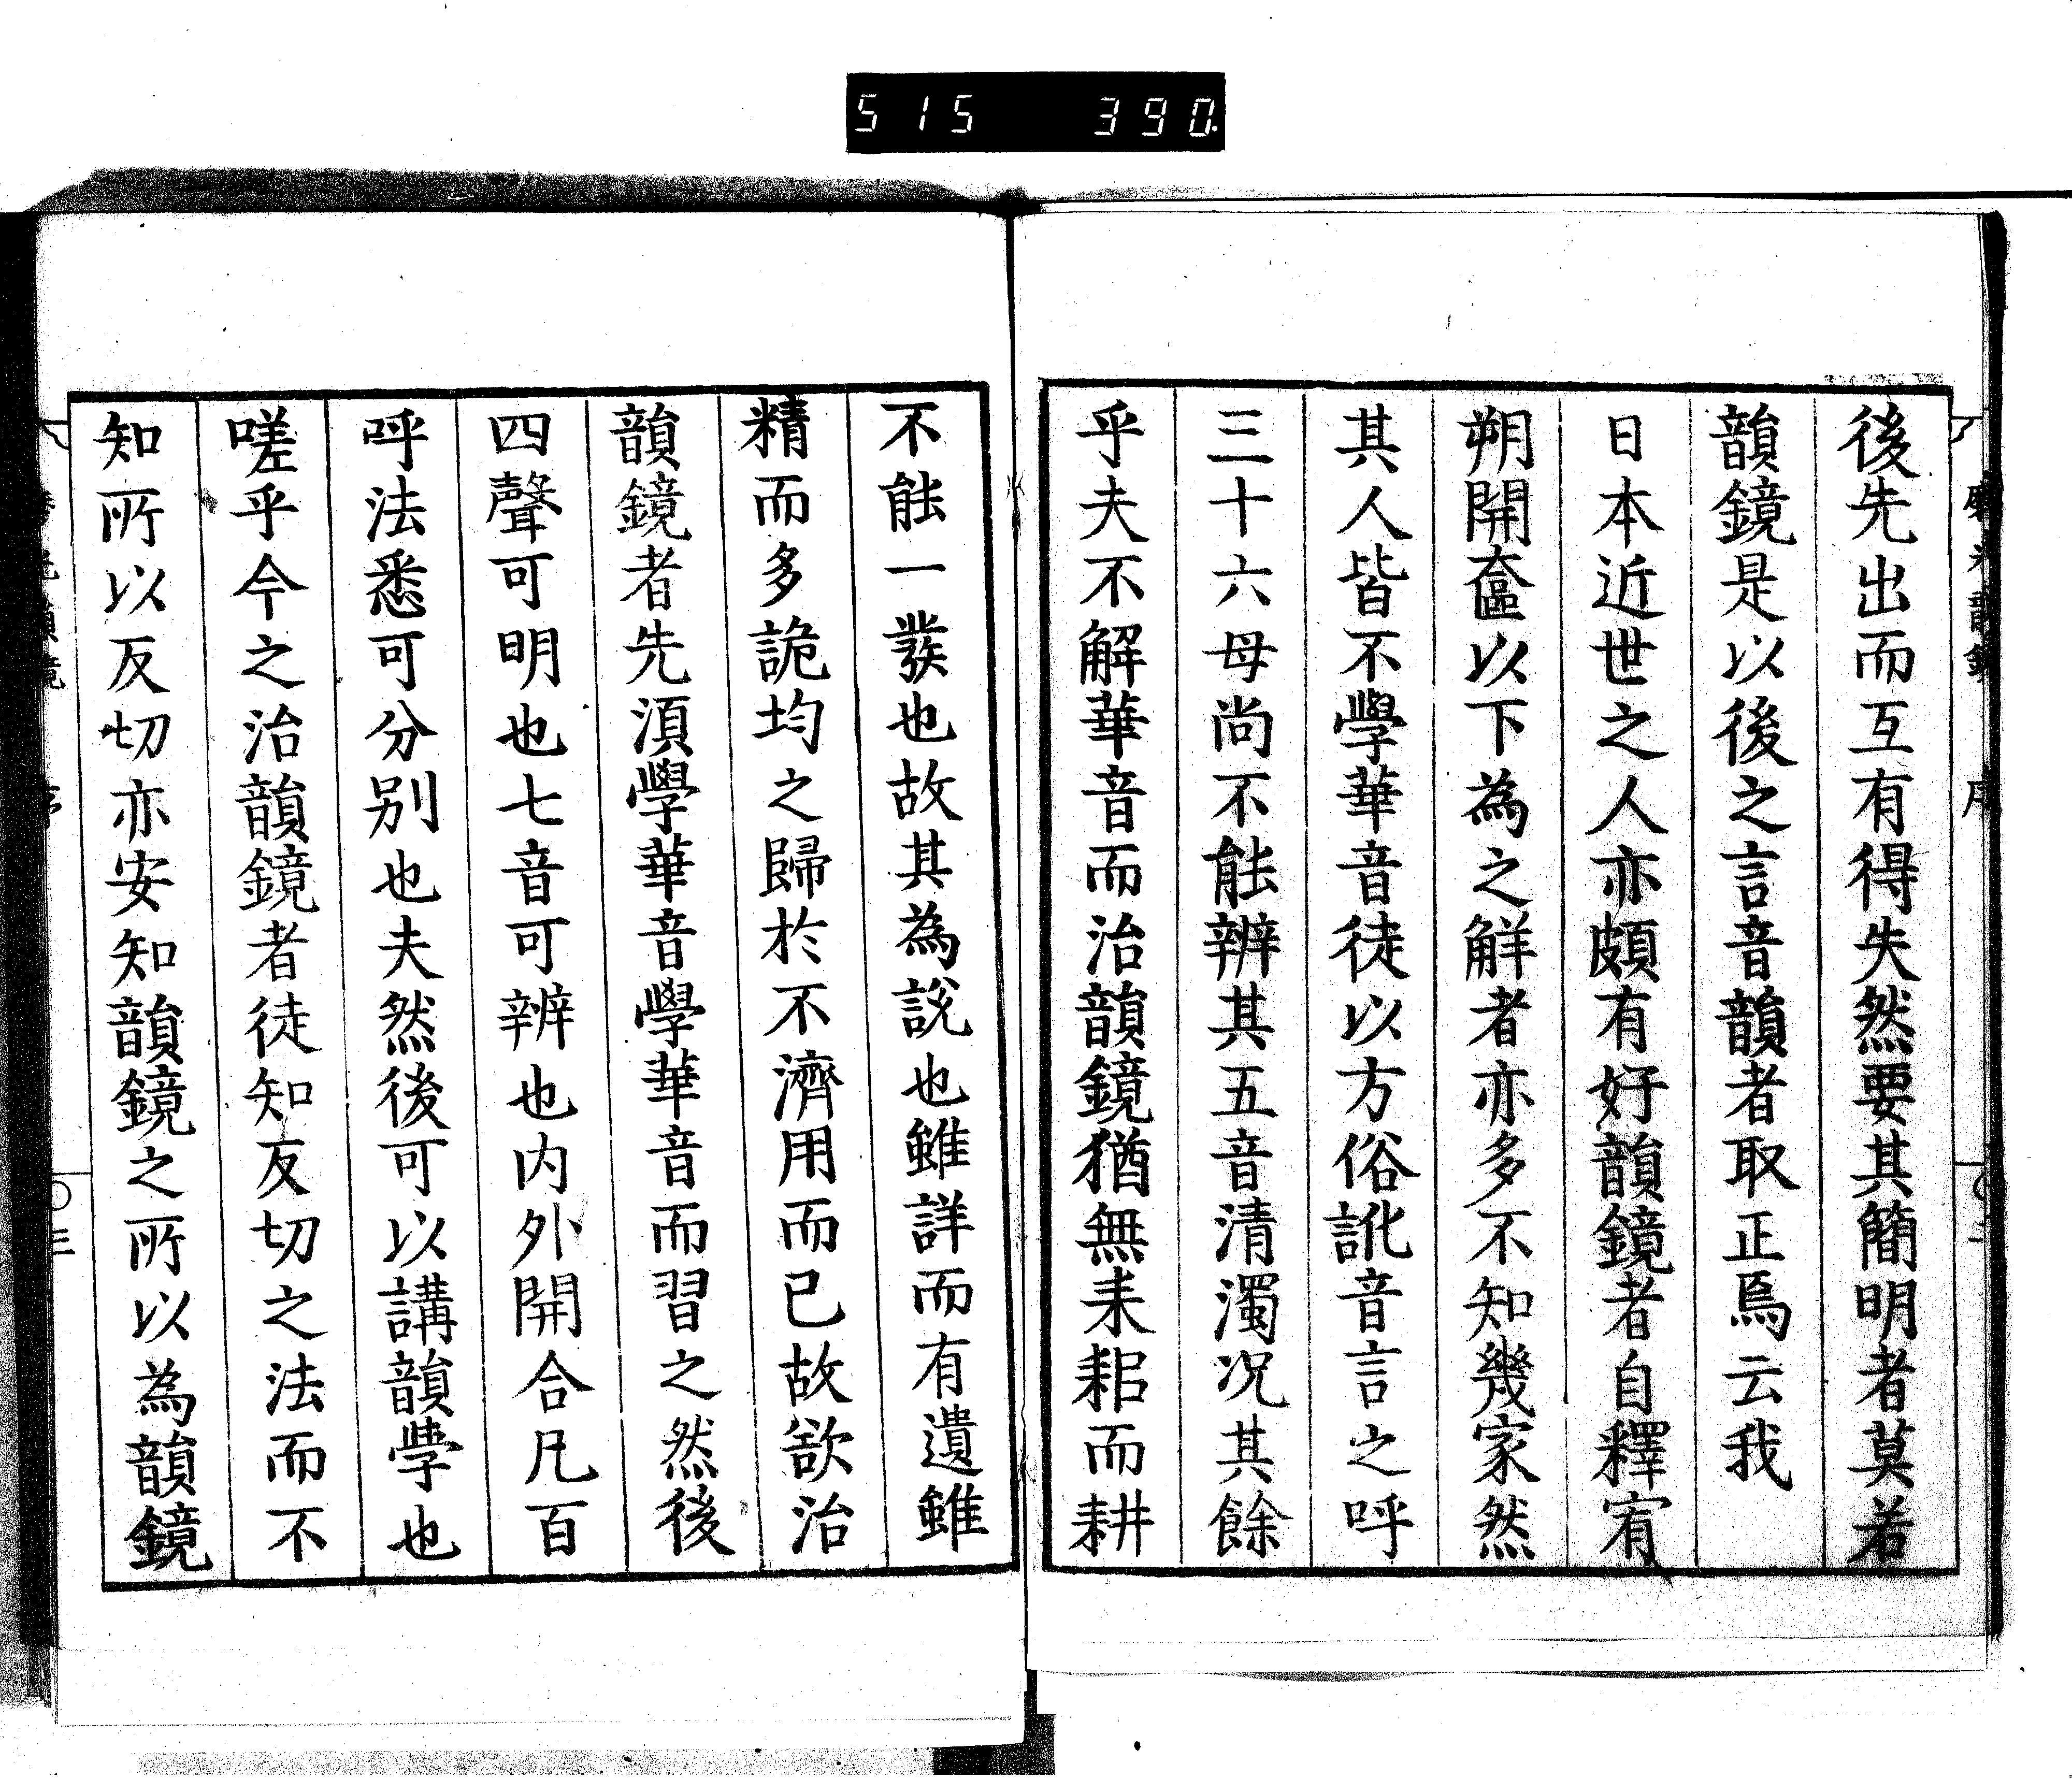 515 390
後先出而互有得失然要其簡明者莫若
韻鏡是以後之言音韻者取正焉云我
日本近世之人亦頗有好韻鏡者自釋宥
朔開奩以下為之解者亦多不知幾家然
其人皆不學華音徒以方俗訛音言之呼
三十六母尚不能辨其五音清濁况其餘
乎夫不解華音而治韻鏡猶無耒耜而耕
不能一發也故其為說也雖詳而有遺雖
精而多詭均之歸於不濟用而已故欲治
韻鏡者先須學華音學華音而習之然後
四聲可明也七音可辨也內外開合凡百
呼法悉可分別也夫然後可以講韻學也
嗟乎今之治韻鏡者徒知反切之法而不
知所以反切亦安知韻鏡之所以為韻鏡